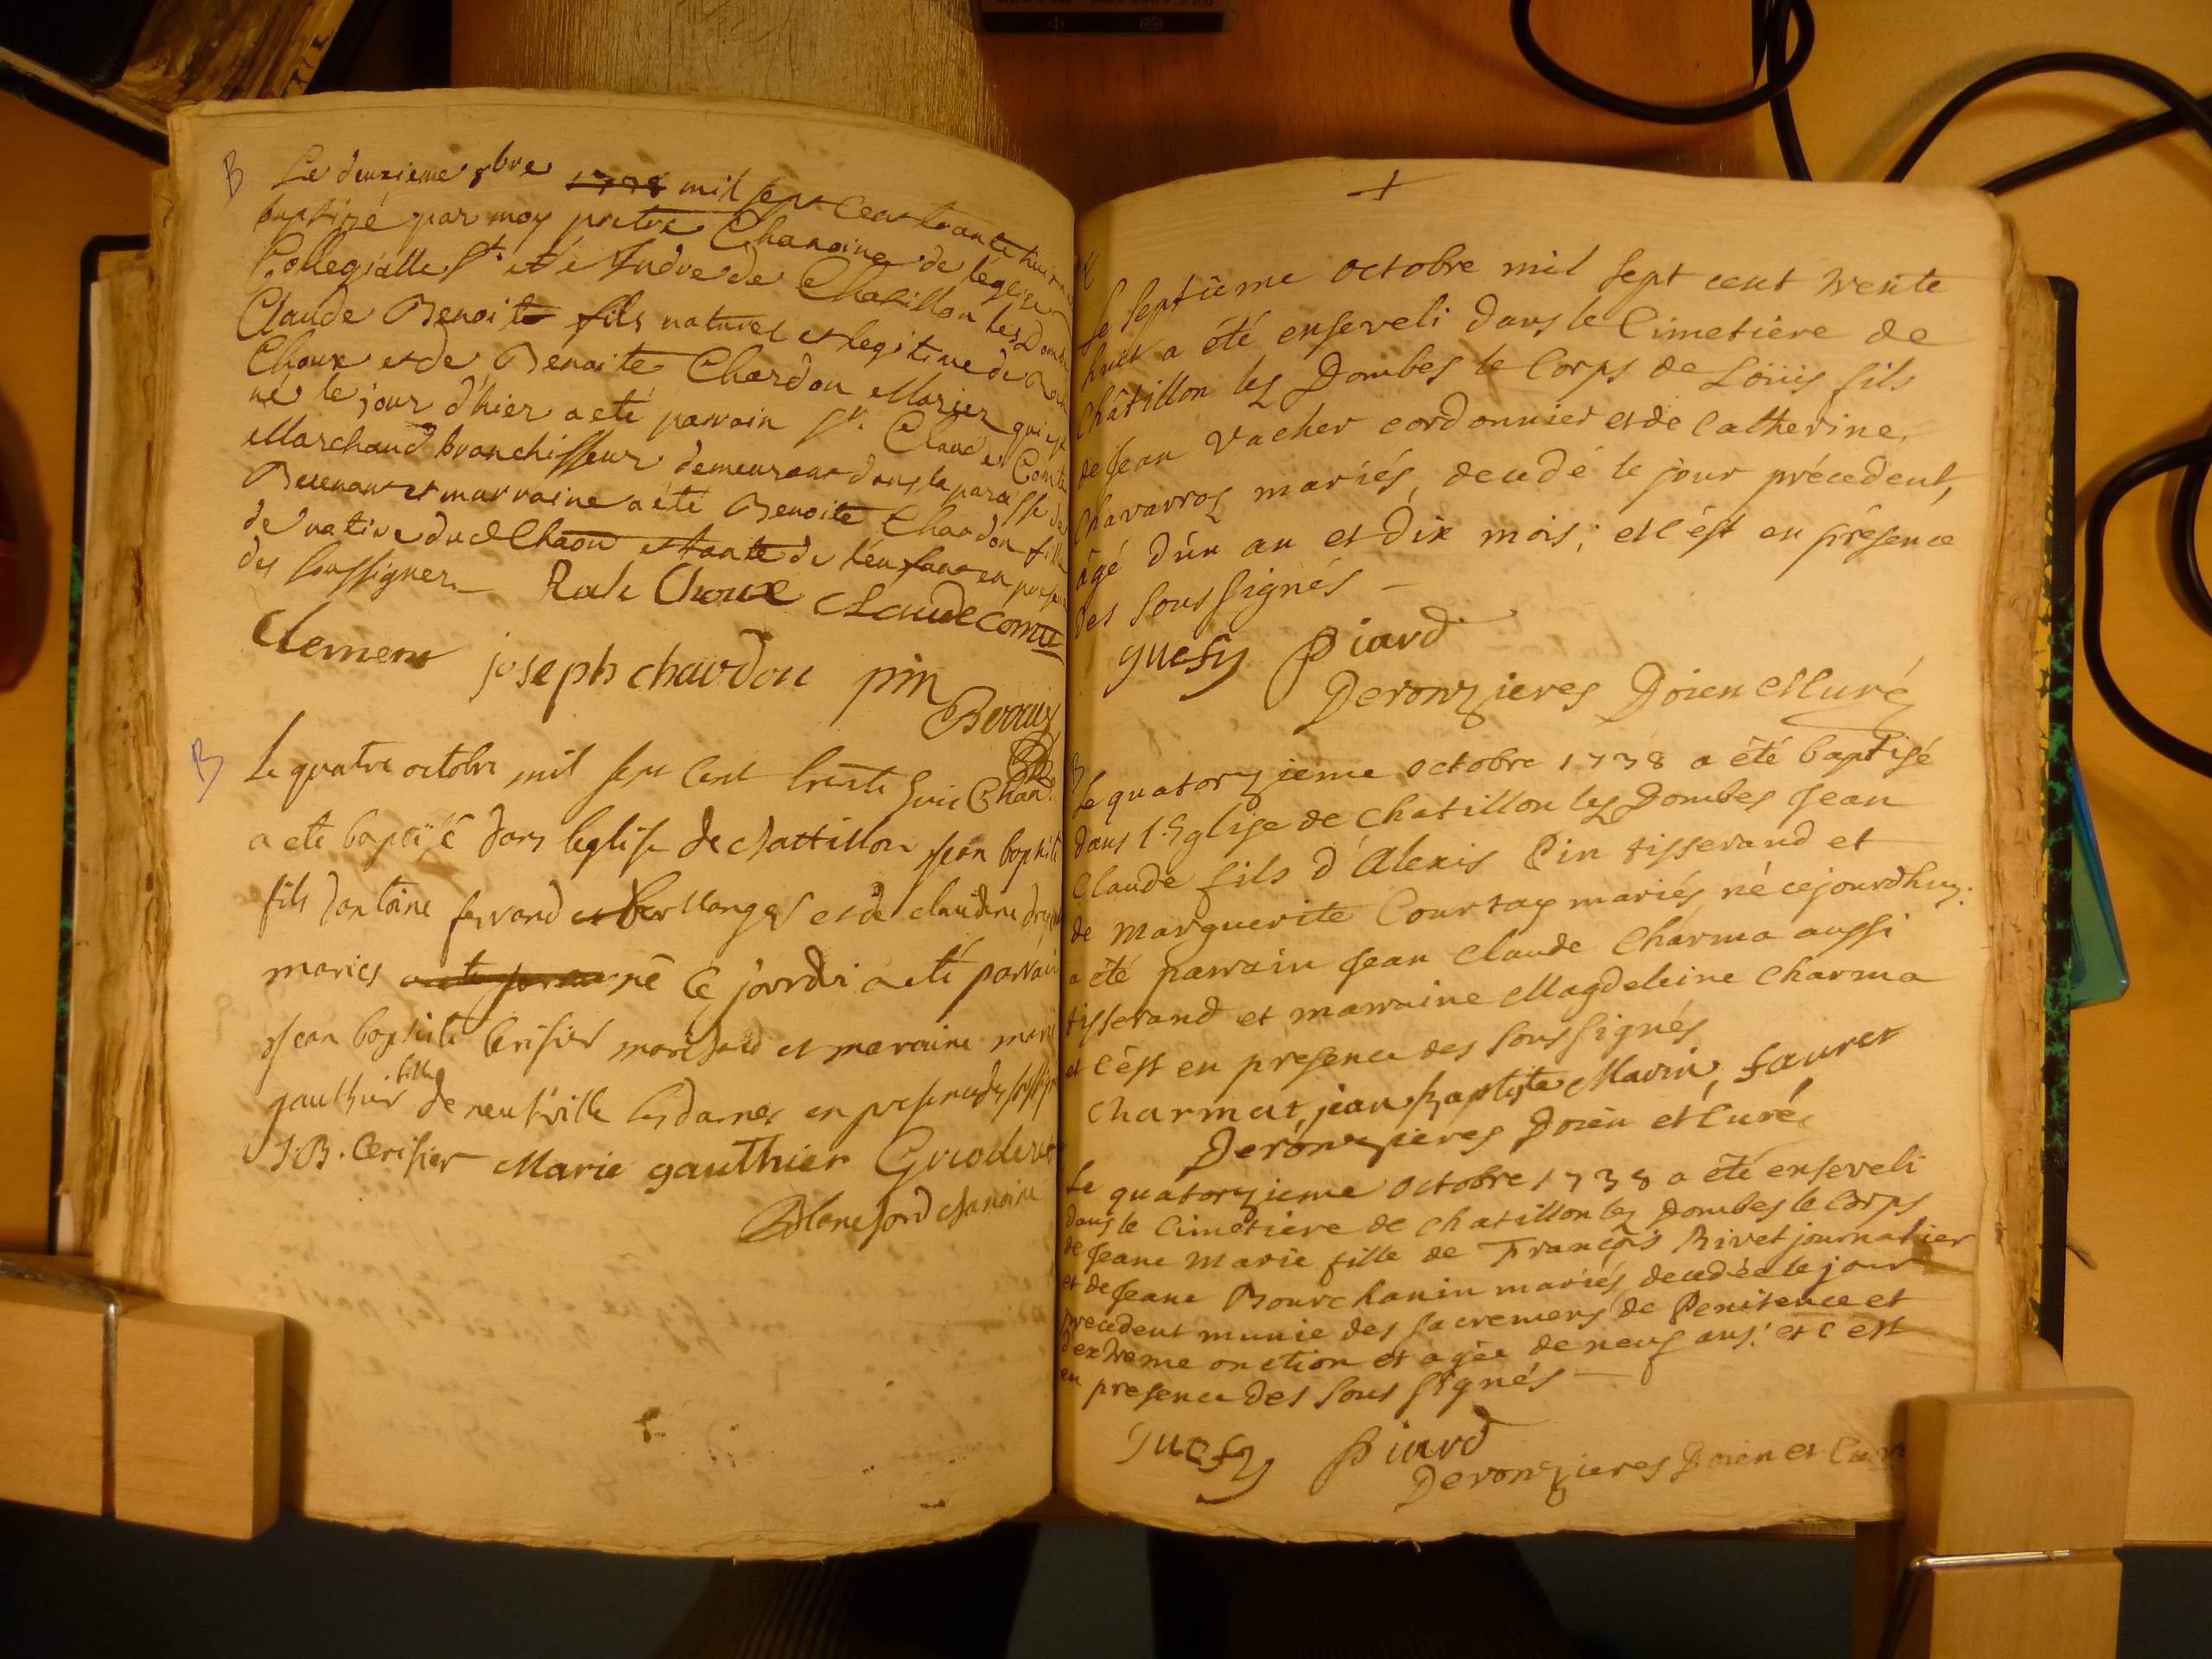 B
Le deuxieme 8bre 1738 mil sept cent trante huit
baptizé par moy pretre Chanoine de leglise
Collegialle St de Chatillon les Dombe
Claude Benoite fils naturel et legitime de Roch
Choux et de Benoite Chardon Mariez qui est
né le jour d'hier a eté parrain Sr. Claude Comte
Marchand branchisseur demeurant dans la paroisse de
et marraine a eté Benoite Chardon fille
de native dud Chaon et tante de l'enfant en presen
des soussignez Choux Claude comte
Clemens joseph chardon pin
B
Le quatre octobre mil sept cent trente huit
a eté baptisé dans leglise de chattillon jean baptiste
fils dantoine ferrand et de claudine
maries né ce jourdi a eté parrain
jean baptiste Cerisier marchand et maraine marie
gauthier fille de neufville les dames en presence des
J. B. Cerisier Marie gauthier
Blanchard chanoine
+
Le septieme octobre mil sept cent trente
huit a été enseveli dans le Cimetiere de
Châtillon les Dombes le Corps de Loüis fils
de Jean Vacher cordonnier et de Catherine
Chavarros mariés, decedé le jour précedent,
âgé d'un an et dix mois; et c'ést en présence
des sous signés -
guesy Piard
Deronzieres Doien et Curé
B
Le quatorzieme octobre 1738 a été baptisé
dans l'Eglise de Chatillon les Dombes Jean
Claude fils d'Alexis Pin tisserand et
de Marguerite Courtay mariés né cejourdhuy.
a été parrain Jean Claude Charma aussi
tisserand et marraine Magdeleine Charma
et c'ést en presence des sous signés
Charmat, jean baptiste Marin, fauret
Deronzieres Doien et Curé
Le quatorzieme octobre 1738 a été enseveli
dans le Cimetiere de Chatillon les Dombes le Corps
de Jeane Marie fille de François Rivet journalier
et de Jeane Bourchanin mariés, decedée le jour
précedent munie des sacremens de Penitence et
d'extreme onction et agée de neuf ans: et c'est
en presence des sous signés -
guesy Piard
Deronzieres Doien et Curé